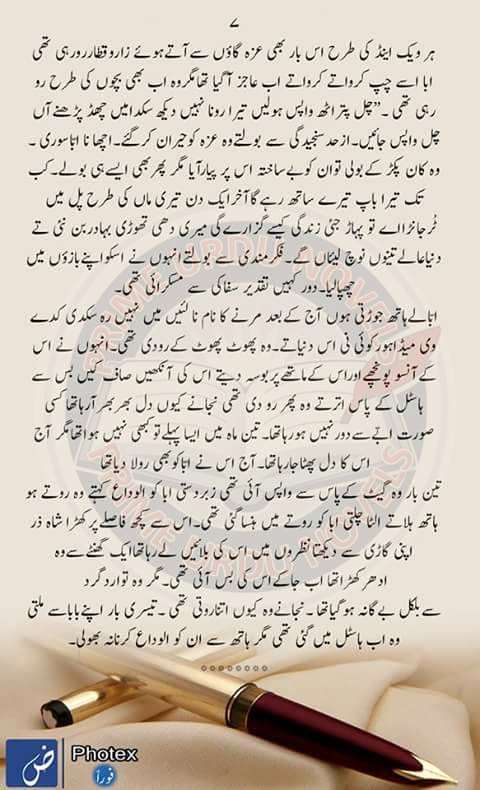 ۷
ہر ویک اینڈ کی طرح اس بار بھی عزہ گاؤں سے آتے ہوئے زار و قطار رو رہی تھی
ابا اسے چپ کرواتے کرواتے اب عاجز آ گیا تھا مگر وہ اب بھی بچوں کی طرح رو
رہی تھی۔"چل پتر اٹھ واپس ہولیں تیرا رونا نہیں دیکھ سکدا میں چھڈ پڑھنے آں
چل واپس جائیں۔ ازحد سنجیدگی سے بولتے وہ عزہ کو حیران کر گئے۔ اچھا نا ابا سوری۔
وہ کان پکڑ کے بولی تو ان کو بے ساختہ اس پر پیار آیا مگر پھر بھی ایسے ہی بولے۔ کب
تک تیرا باپ تیرے ساتھ رہے گا آخر ایک دن تیری ماں کی طرح پل میں
ٹر جانڑا اے تو پہاڑ جئی زندگی کیسے گزارے گی میری دھی تھوڑی بہادر بن نئی تے
دنیا والے تینوں نوچ لیناں گے۔ فکر مندی سے بولتے انہوں نے اسکو اپنے بازؤں میں
چھپا لیا۔ دور کہیں تقدیر سفاکی سے مسکرائی تھی۔
ابا لے ہاتھ جوڑتی ہوں آج کے بعد مرنے کا نام نا لئیں میں نہیں رہ سکدی کدے
وی میڈا ہور کوئی نی اس دنیا تے۔ وہ پھوٹ پھوٹ کے رو دی تھی۔ انہوں نے اس
کے آنسو پونچھے اور اس کے ماتھے پر بوسہ دیتے اس کی آنکھیں صاف کیں بس سے
ہاسٹل کے پاس اترتے وہ پھر رو دی تھی نجانے کیوں دل بھر بھر آ رہا تھا کسی
صورت ابے سے دور نہیں ہو رہا تھا۔ تین ماہ میں ایسا پہلے تو کبھی نہیں ہوا تھا مگر آج
اس کا دل پھٹا جا رہا تھا۔ آج اس نے ابا کو بھی رولا دیا تھا
تین بار وہ گیٹ کے پاس سے واپس آئی تھی زبردستی ابا کو الوداع کہتے وہ روتے ہو
ہاتھ ہلاتے الٹا چلتی ابا کو روتے میں ہنسا گئی تھی۔ اس سے کچھ فاصلے پر کھڑا شاہ ذر
اپنی گاڑی سے دیکھتا نظروں میں اس کی بلائیں لے رہا تھا ایک گھنٹے سے وہ
ادھر کھڑا تھا اب جا کے اس کی بس آئی تھی۔ مگر وہ تو ارد گرد
سے بلکل بے گانہ ہو گیا تھا۔ نجانے وہ کیوں اتنا روتی تھی۔ تیسری بار اپنے بابا سے ملتی
وہ اب ہاسٹل میں گئی تھی مگر ہاتھ سے ان کو الوداع کرنا نہ بھولی۔
********
PRIME URDU NOVELS
PRIME URDU NOVELS
ض
Photex
فوراً